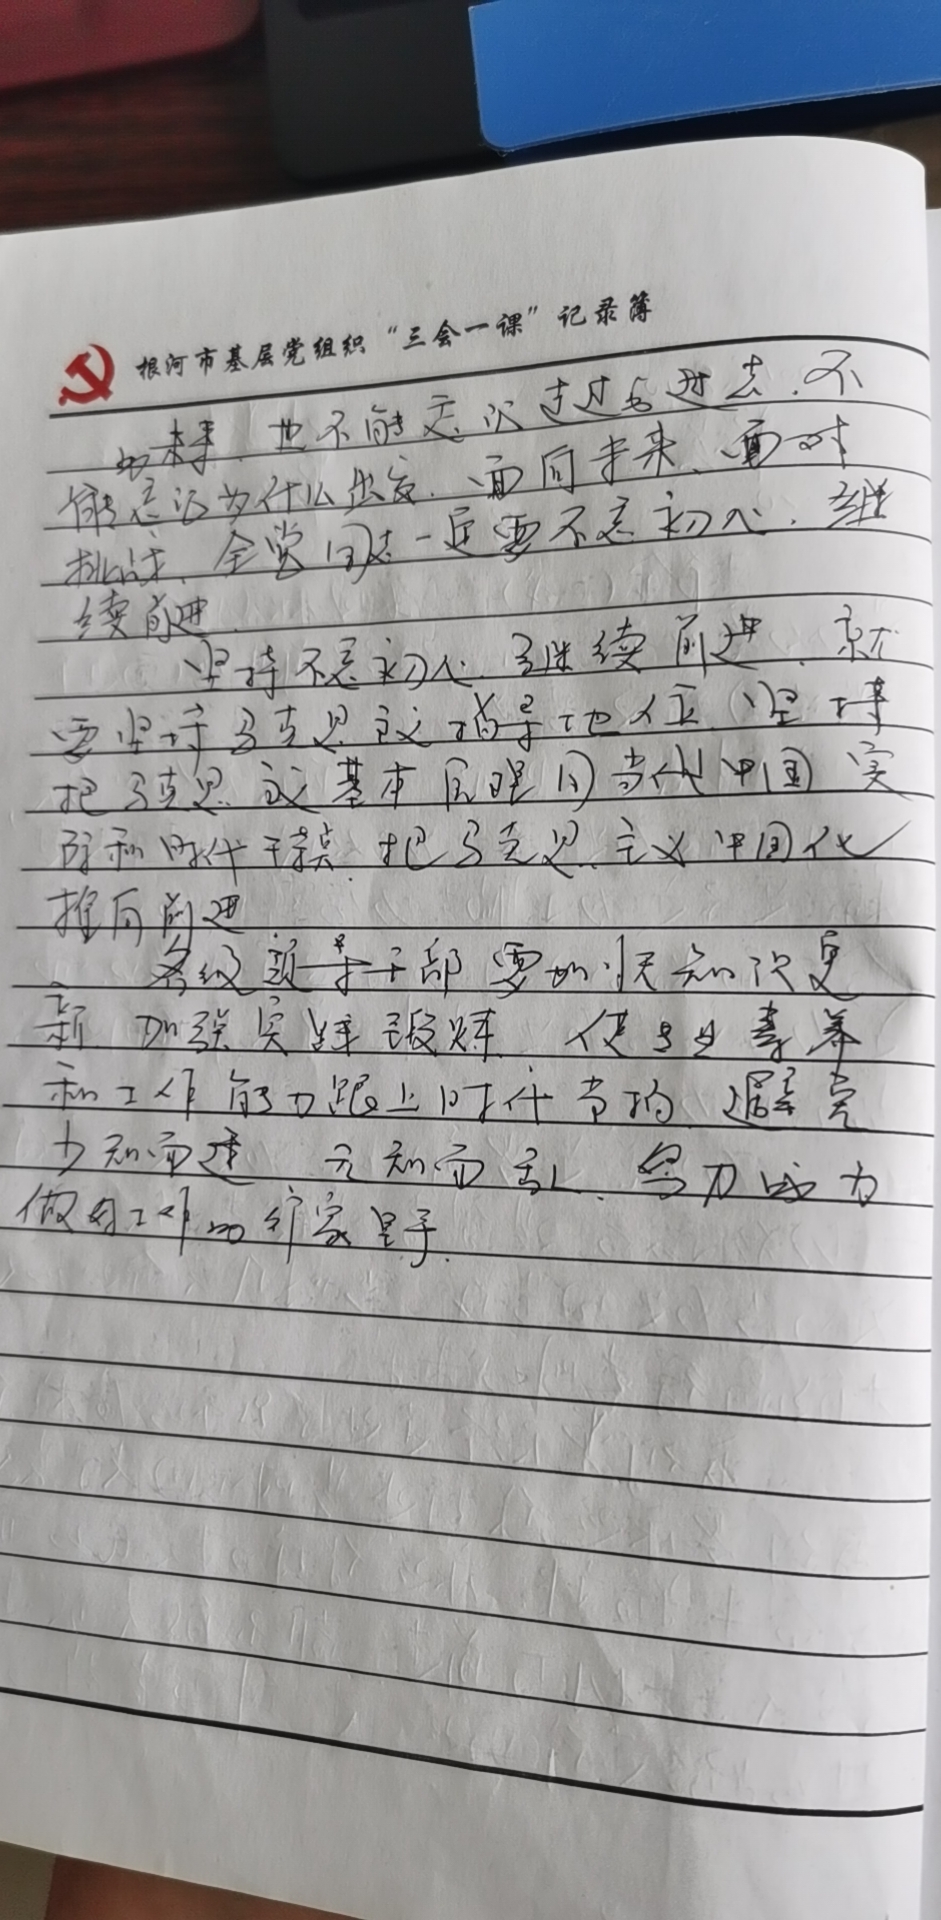 根河市基层党组织“三会一课”记录簿
的未来，也不能忘记走过的过去，不
能忘记为什么出发，面向未来、面对
挑战，全党同志一定要不忘初心、继
续前进.
坚持不忘初心、继续前进，就
要坚持马克思主义指导地位，坚持
把马克思主义基本原理同当代中国实
际和时代特点，把马克思主义中国化
推向前进
各级领导干部要加快知识更
新 加强实践锻炼 使专业素养
和工作能力跟上时代节拍 避免
少知而迷 无知而乱、努力成为
做好工作的行家里手.